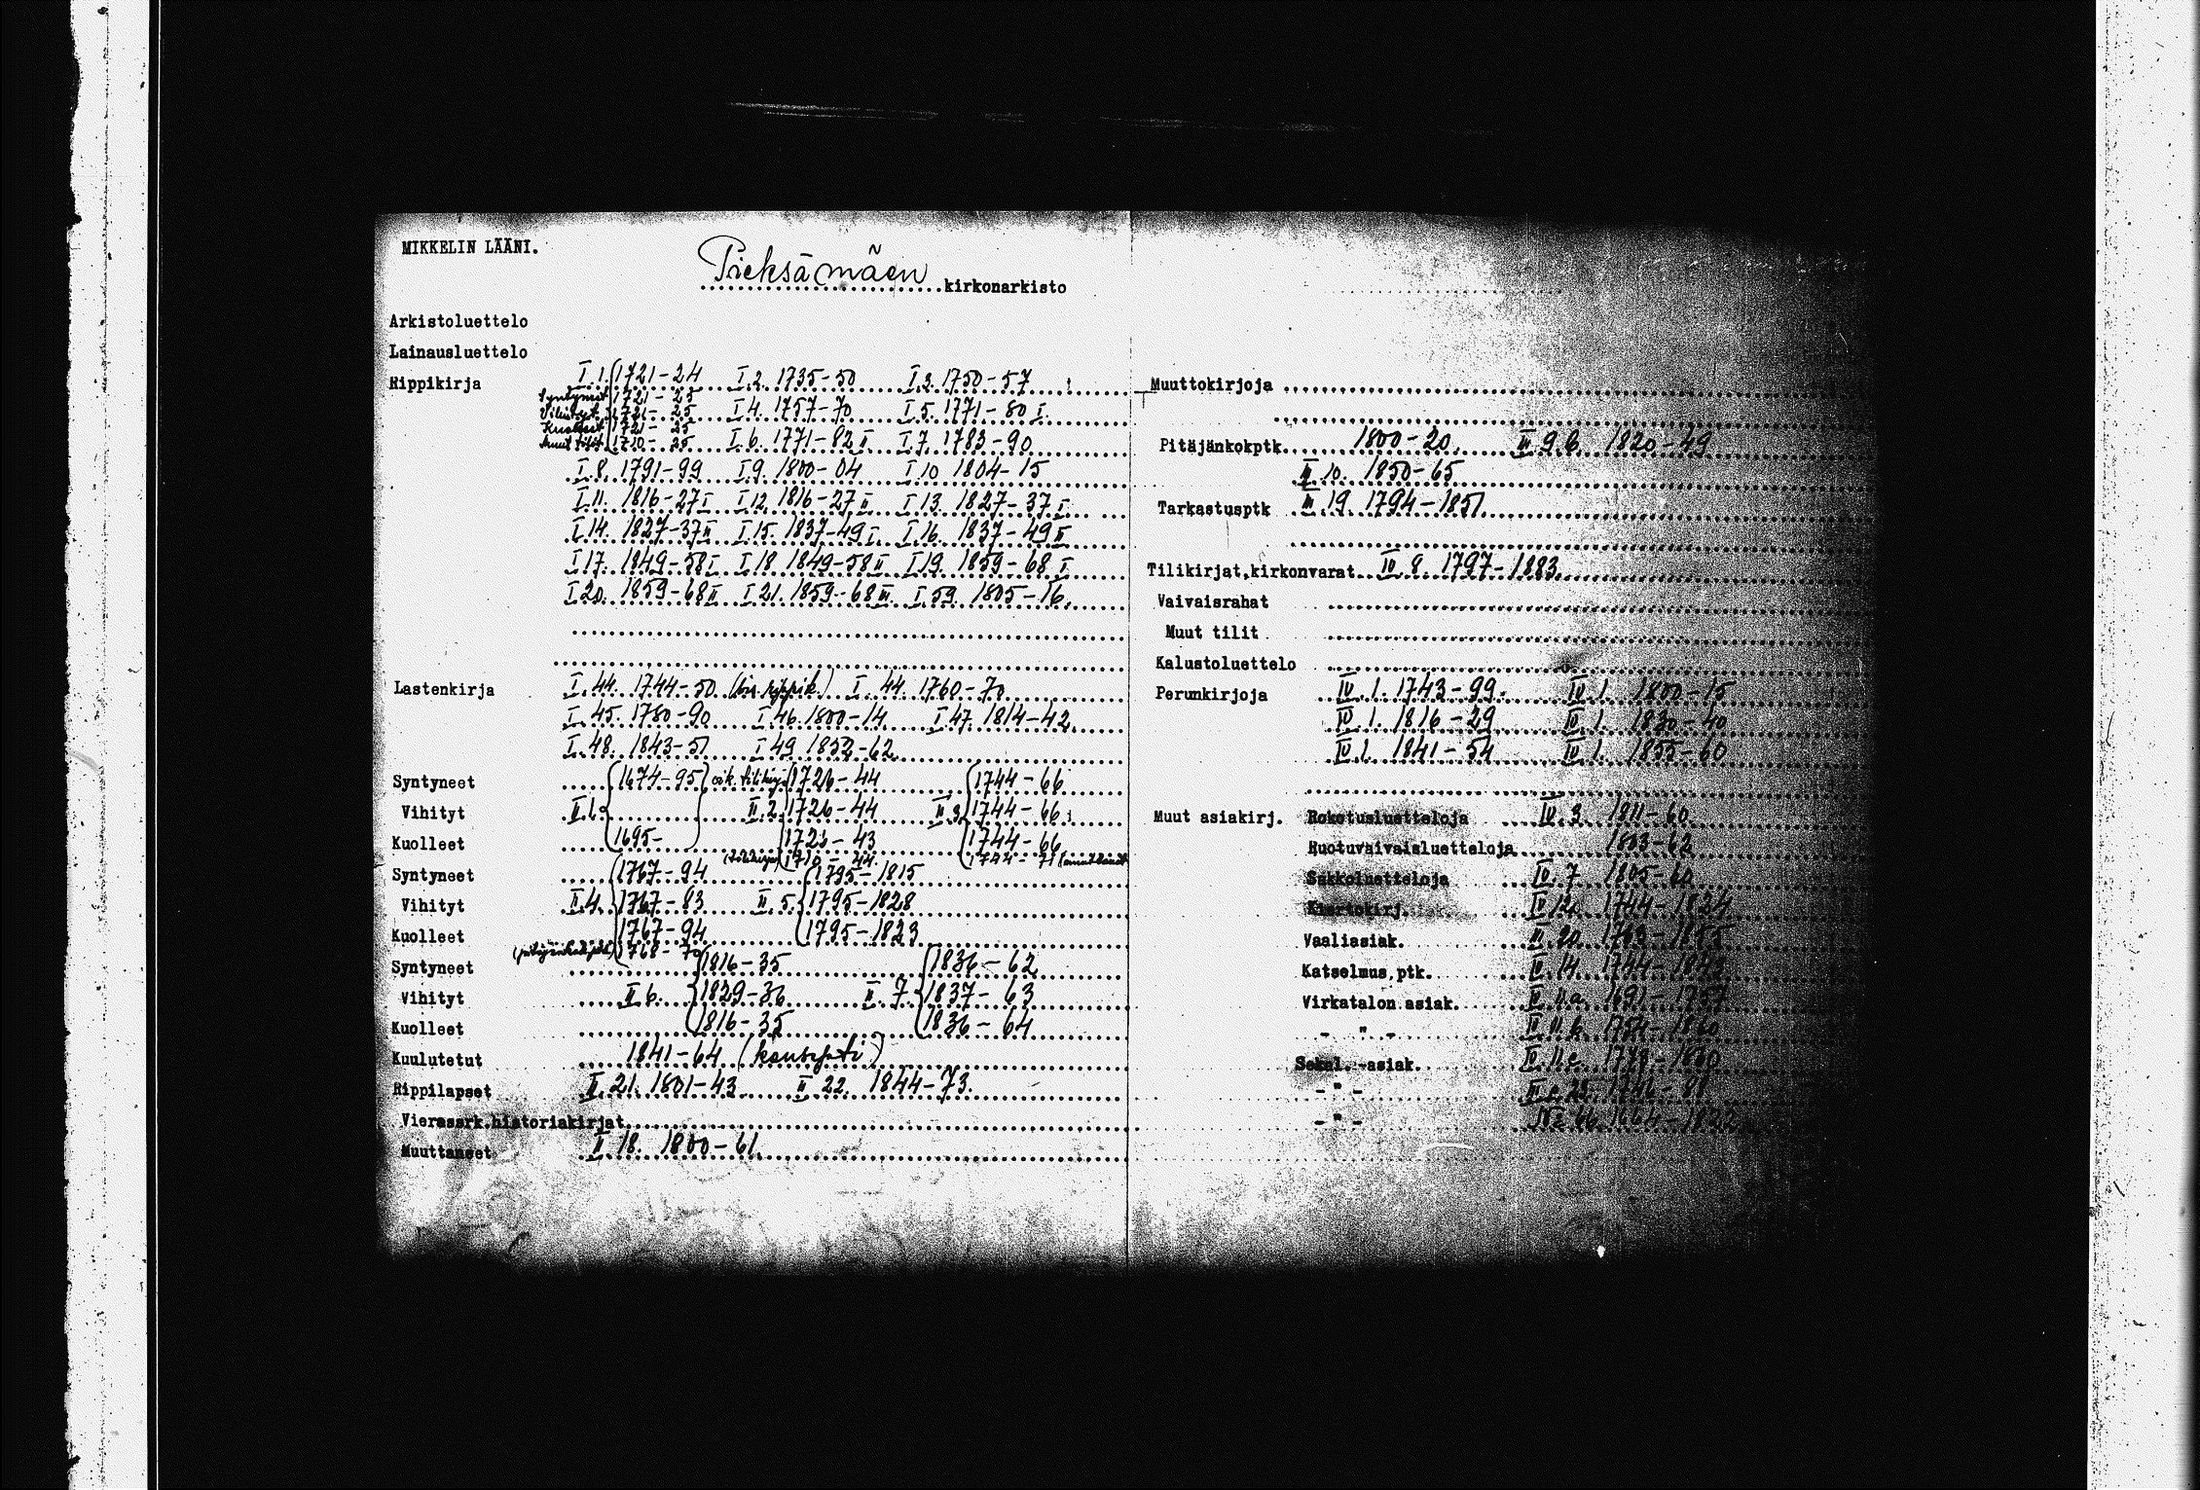 MIKKELIN LÄÄNI.
Pieksämäen kirkonarkisto
Arkistoluettelo
Lainausluettelo
Rippikirja I.1. 1721-24 I.2. 1735-50 I.3. 1750-57
Syntyneet 1721-25
Vihityt 1721-25 I.4. 1757-70 I.5. 1771-80 I
Kuolleet 1721-25
Muut tilit 1710-25 I.6. 1771-82 II I.7. 1783-90
I.8. 1791-99 I.9. 1800-04 I.10 1804-15
I.11. 1816-27 I I.12. 1816-27 II I.13. 1827-37 I
I.14. 1827-37 II I.15. 1837-49 I. I.16. 1837-49 II
I.17. 1849-58 I I.18. 1849-58 II I.19. 1859-68 I
I.20. 1859-68 II I.21. 1859-68 III. I.59. 1805-16.
Lastenkirja I.44. 1744-50 I.44. 1760-70
I.45. 1780-90 I.46. 1800-14 I.47. 1814-42
I.48. 1843-51 I.49 1852-62
Syntyneet 1674-95 1726-44 1744-66
Vihityt II.1. II.2. 1726-44 II.3. 1744-66
Kuolleet 1695- 1725-43 1744-66
Syntyneet 1767-94 1795-1815
Vihityt II.4. 1767-83 II.5. 1795-1828
Kuolleet 1767-94 1795-1823
1768-70
Syntyneet 1816-35 1836-62
Vihityt II.6. 1829-36 II.7. 1837-63
Kuolleet 1816-35 1836-64
Kuulutetut 1841-64 (konsepti)
Rippilapset II.21. 1801-43 II.22. 1844-73.
Vierassrk.historiakirjat
Muuttaneet II.18. 1800-61.
Muuttokirjoja
Pitäjänkokptk. 1800-20. II.9.b. 1820-49
II.10. 1850-65
Tarkastusptk III.19. 1794-1851
Tilikirjat,kirkonvarat IV.8. 1797-1883.
Vaivaisrahat
Muut tilit
Kalustoluettelo
Perunkirjoja IV.1. 1743-99. IV.1. 1800-15
IV.1. 1816-29 IV.1. 1830-40
IV.1. 1841-54 IV.1. 1855-60
Muut asiakirj. Rokotusluetteloja IV.3. 1811-60
Ruotuvaivaisluetteloja 1803-62
Sakkoluetteloja IV.7 1805-60
Kiertokirj. 1744-1824
Vaaliasiak.
Katselmus.ptk. IV.14.
Virkatalon asiak. IV.11.a. 1691-1757
- " - IV.11.b. 1784-1860
Sekal.-asiak. IV.11.c.
- " -
- " -